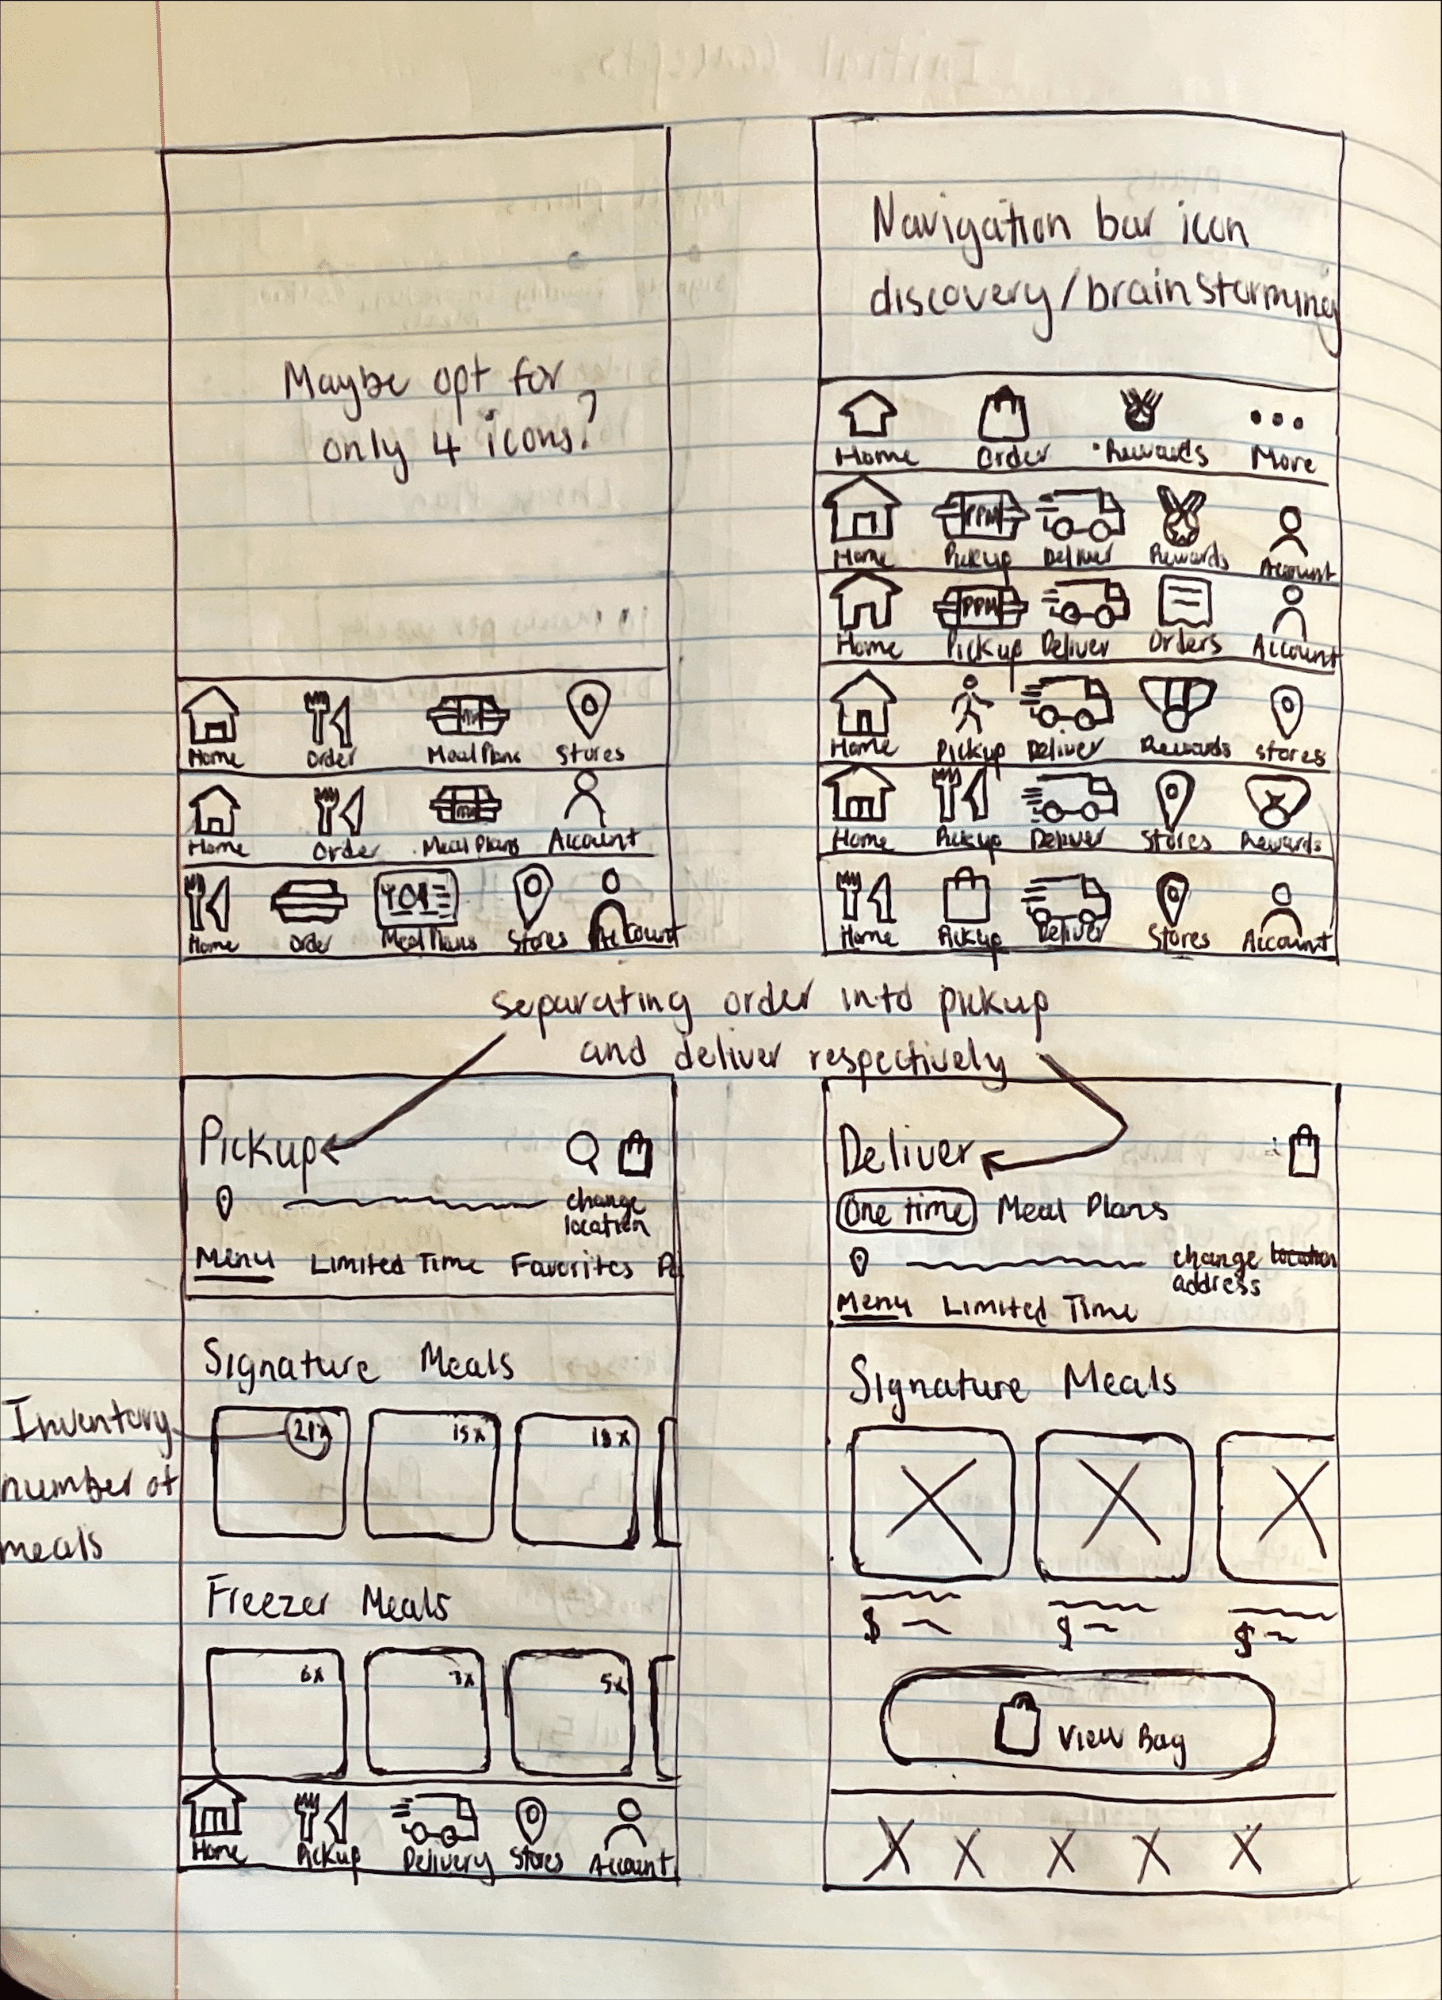 Maybe opt for
only 4 icons?
Home Order Meal Plans Stores
Home Order Meal Plans Account
Home Order Meal Plans Stores Account
Navigation bar icon
discovery/brainstorming
Home Order Rewards More
PPM
Home Pickup Deliver Rewards Account
PPM
Home Pickup Deliver Orders Account
Home Pickup Deliver Rewards Stores
Home Pickup Deliver Stores Rewards
Home Pickup Deliver Stores Account
separating order into pickup
and deliver respectively
Pickup
change
location
Menu Limited Time Favorites
Signature Meals
21x 15x 18x
Inventory
number of
meals
Freezer Meals
6x 7x 5x
Home Pickup Delivery Stores Account
Deliver
One time Meal Plans
change location
address
Menu Limited Time
Signature Meals
$ $ $
View Bag